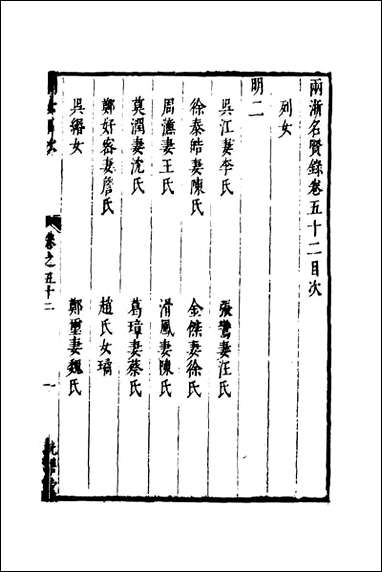 兩浙名賢錄卷五十二目次
列女
明二
吳江妻李氏 張鸞妻汪氏
徐泰皓妻陳氏 金傑妻徐氏
周濂妻王氏 滑鳳妻陳氏
莫潤妻沈氏 葛璋妻蔡氏
鄭好容妻詹氏 趙氏女瑀
吳綹女 鄭璽妻魏氏
卷之五十二 一